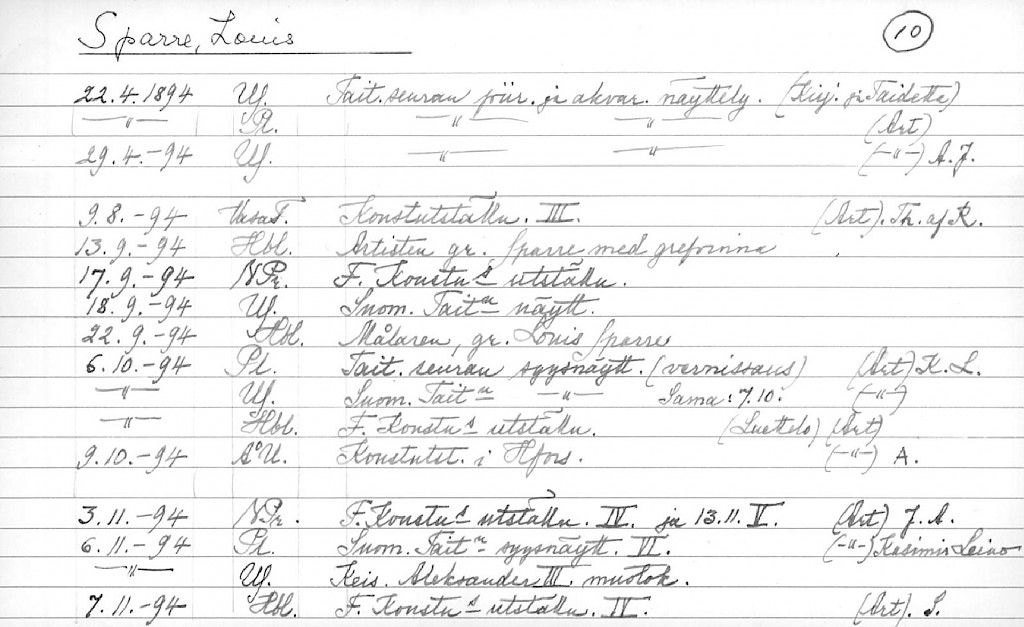 Sparre, Louis 10
22.4.1894 Uf. Tait. seuran piir. ja akvar. näyttely. (Kirj. ja Taidetta)
—"— Pl. —"— —"— (Art)
29.4.-94 Uf. —"— —"— (-"-) A.J.
9.8.-94 VasaT. Konstutställn. III. (Art). Th. af R.
13.9.-94 Hbl. Artisten gr. Sparre med grefvinna
17.9.-94 N.Pr. F. Konstns utställn.
18.9.-94 Uf. Suom. Taitn näytt.
22.9.-94 Hbl. Målaren, gr. Louis Sparre
6.10.-94 Pl. Tait. seuran syysnäytt. (vernissaus) (Art) K.L.
—"— Uf. Suom. Taitn —"— Sama: 7.10. (-"-)
—"— Hbl. F. Konstns utställn. (Luettelo) (Art)
9.10.-94 Å.U. Konstutst. i Hfors. (-"-) A.
3.11.-94 N.Pr. F. Konstns utställn. IV. ja 13.11. V. (Art) J.A.
6.11.-94 Pl. Suom. Taitn syysnäytt. VI. (-"-) Kasimir Leino
—"— Uf. Keis. Aleksander III. muotok.
7.11.-94 Hbl. F. Konstns utställn. IV. (Art). S.